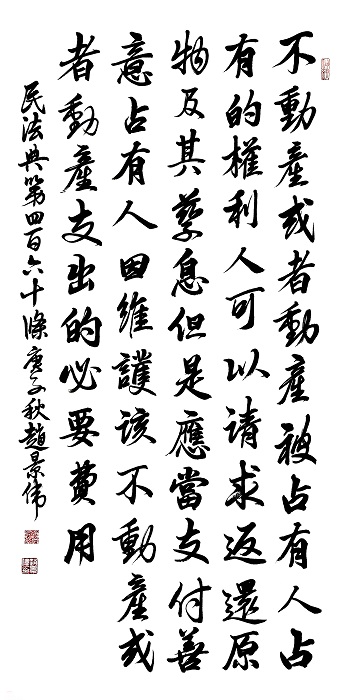 不動產或者動產被占有人占
有的權利人可以请求返還原
物及其孳息但是應當支付善
意占有人因維護该不動產或
者動產支出的必要費用
民法典第四百六十條庚子秋趙景伟